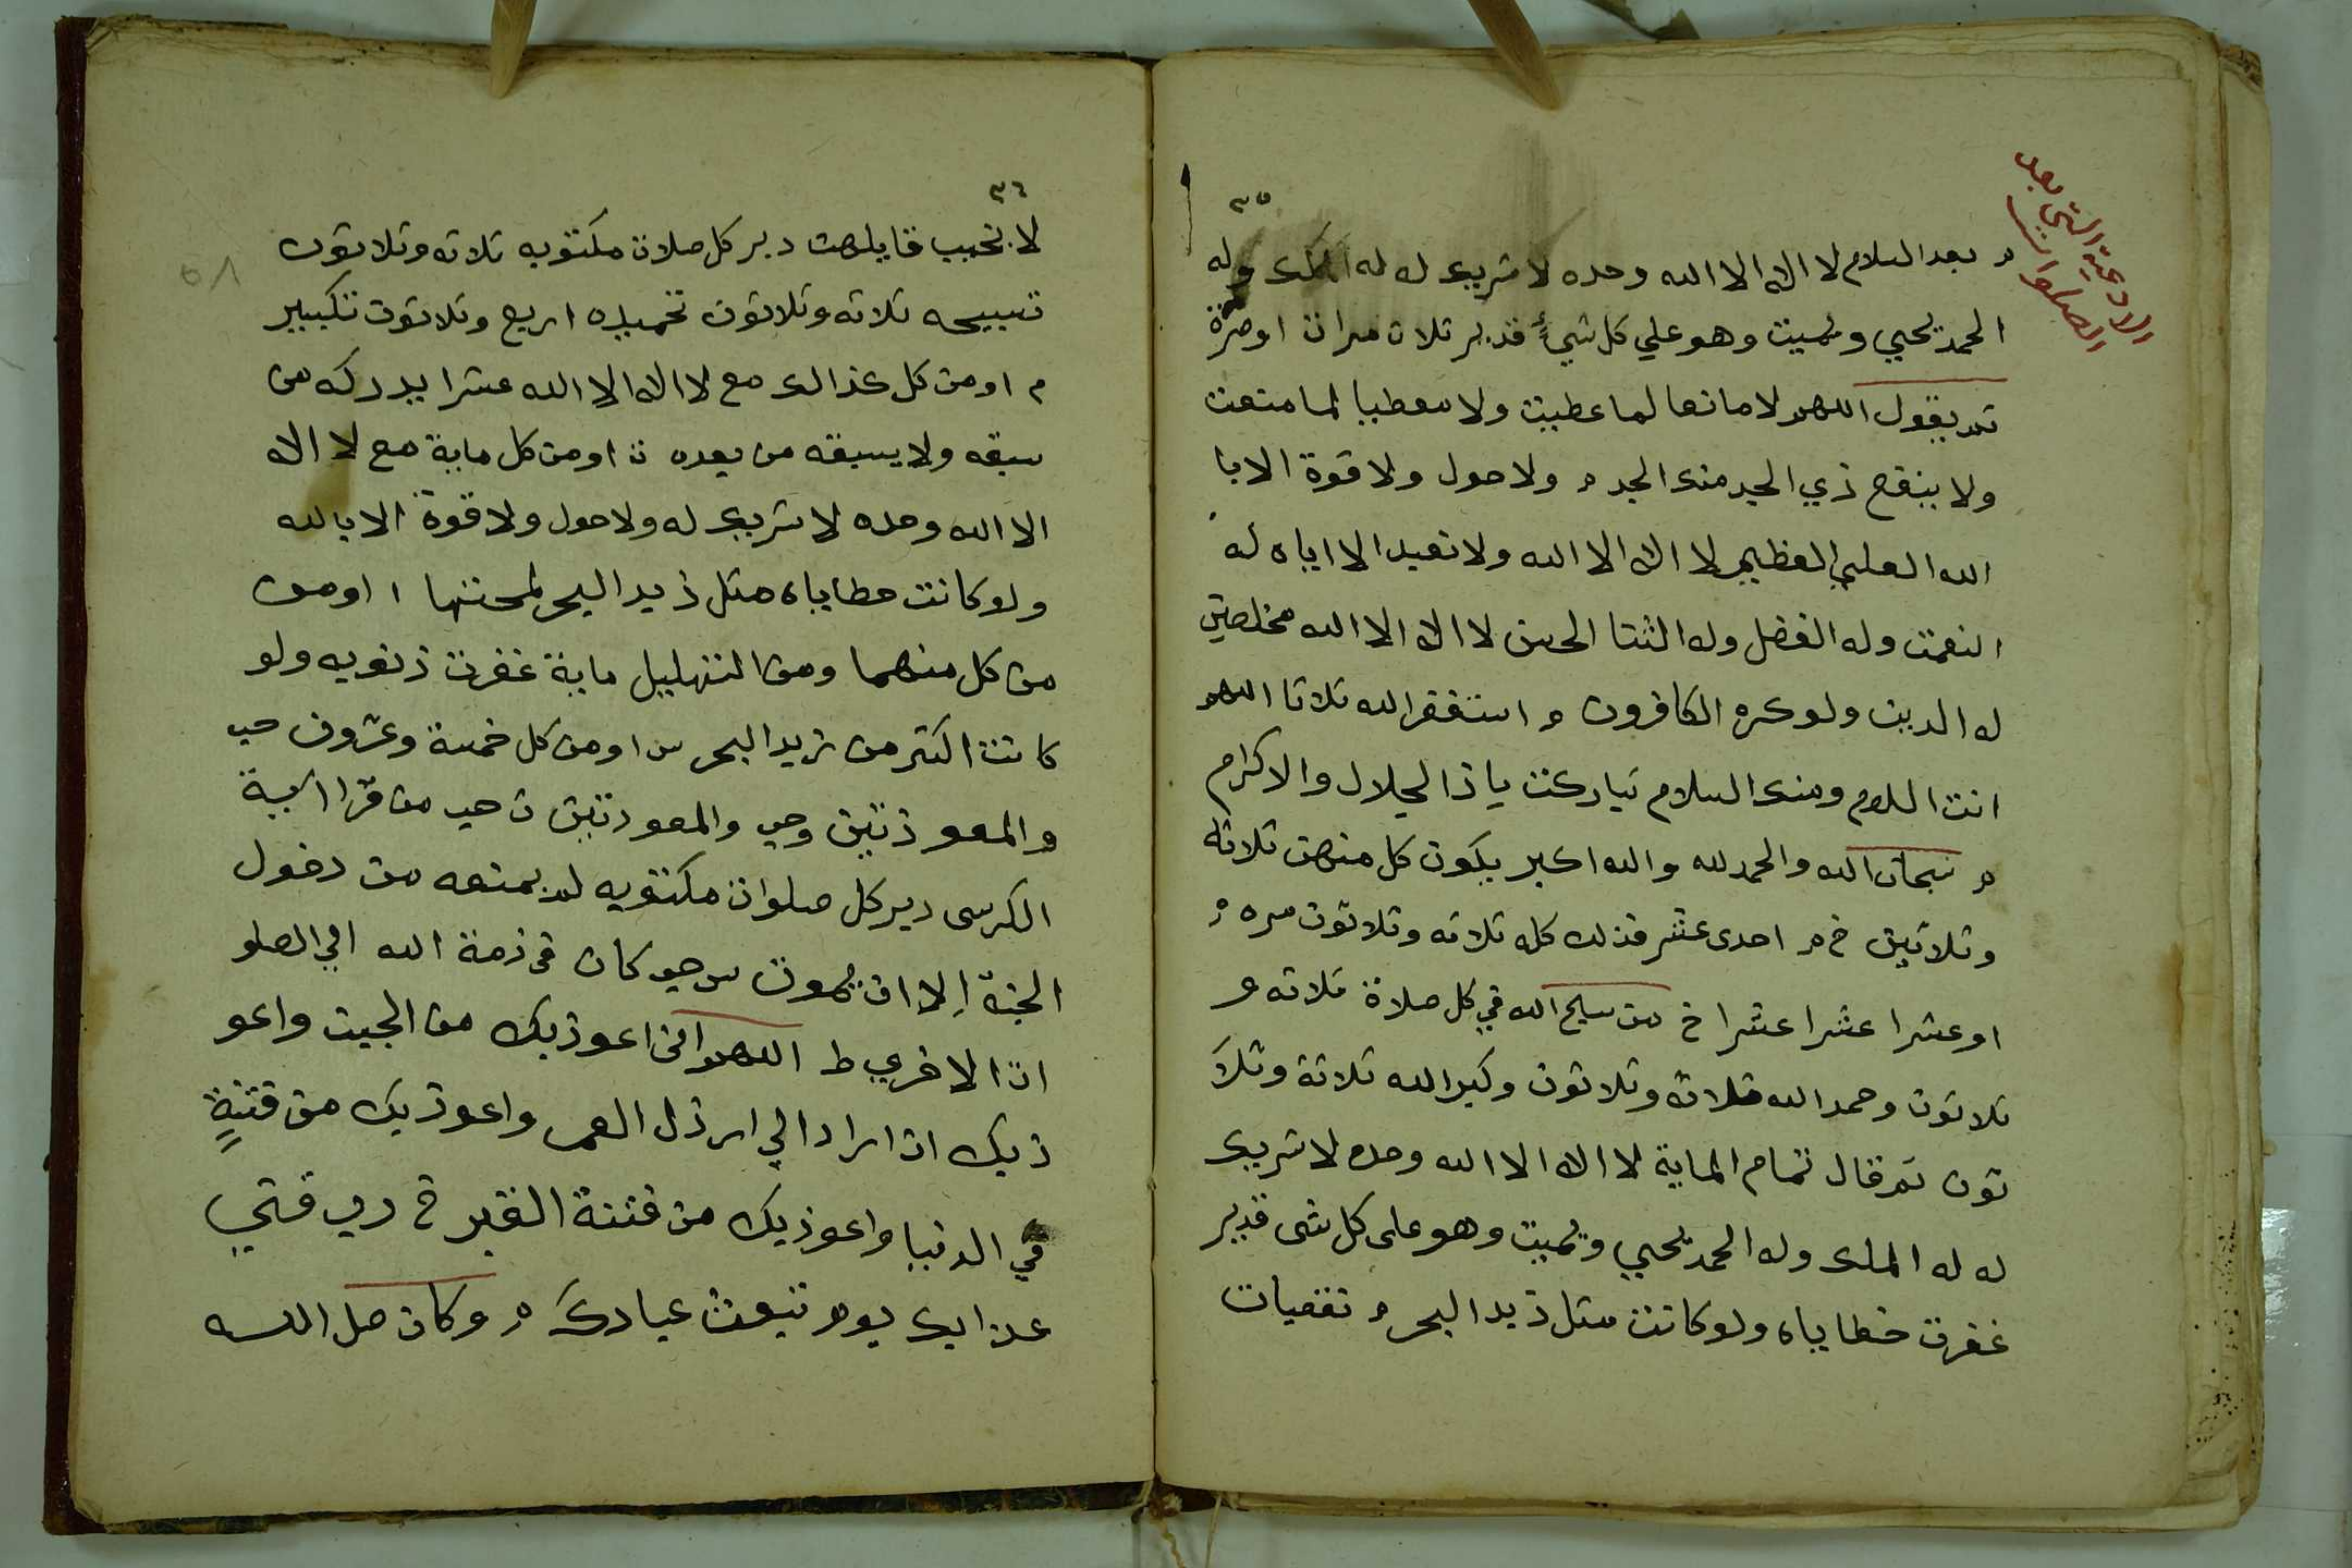 الادعية التي بعد
الصلوات
٣٥
م بعد السلام لا اله الا الله وحده لا شريك له له الملك وله
الحمد يحيي ويميت وهو علي كل شيءٍ قدير ثلاث مرات او مرة
ثم يقول اللهم لا مانعا لما عطيت ولا معطيا لما منعت
ولا ينفع ذي الجد منك الجد م ولا حول ولا قوة الا با
الله العلي العظيم لا اله الا الله ولا نعبد الا اياه له
النعمت وله الفضل وله الثنا الحسن لا اله الا الله مخلصين
له الدين ولو كره الكافرون م استغفر الله ثلاثا اللهم
انت السلام ومنك السلام تباركت يا ذا الجلال والاكرام
م سبحان الله والحمد لله والله اكبر يكون كل منهن ثلاثه
وثلاثين خ م احدى عشر فذلك كله ثلاثه وثلاثون مره م
او عشرا عشرا عشرا خ من سبح الله في كل صلاة ثلاثه و
ثلاثون وحمد الله ثلاثه وثلاثون وكبر الله ثلاثة وثلا
ثون ثم قال تمام الماية لا اله الا الله وحده لا شريك
له له الملك وله الحمد يحيي ويميت وهو على كل شى قدير
غفرت خطاياه ولو كانت مثل زبد البحر م تعقبات
٣٦
لا يخيب قايلهن دبر كل صلاة مكتوبه ثلاثه وثلاثون
تسبيحه ثلاثه وثلاثون تحميده اربع وثلاثون تكبير
م او من كل كذالك مع لا اله الا الله عشرا يدركه من
سبقه ولا يسبقه من بعده ت او من كل ماية مع لا اله
الا الله وحده لا شريك له ولا حول ولا قوة الا بالله
ولو كانت خطاياه مثل زبد البحر لمحتها ا او من
من كل منهما ومن التهليل ماية غفرت ذنوبه ولو
كانت اكثر من زبد البحر س او من كل خمسة وعشرون حب
والمعوذتين وحب والمعوذتين ت حب من قرا آية
الكرسى دبر كل صلوات مكتوبه لم يمنعه من دخول
الجنة اِلا ان يموت س حب كان فى ذمة الله الي الصلو
ات الاخري ط اللهم انى اعوذ بك من الجبن واعو
ذ بك ان اراد الي ارذل العمر واعوذ بك من فتنةٍ
في الدنيا واعوذ بك من فتنة القبر خ رب قني
عذابك يوم تبعث عبادك م وكان صل الله